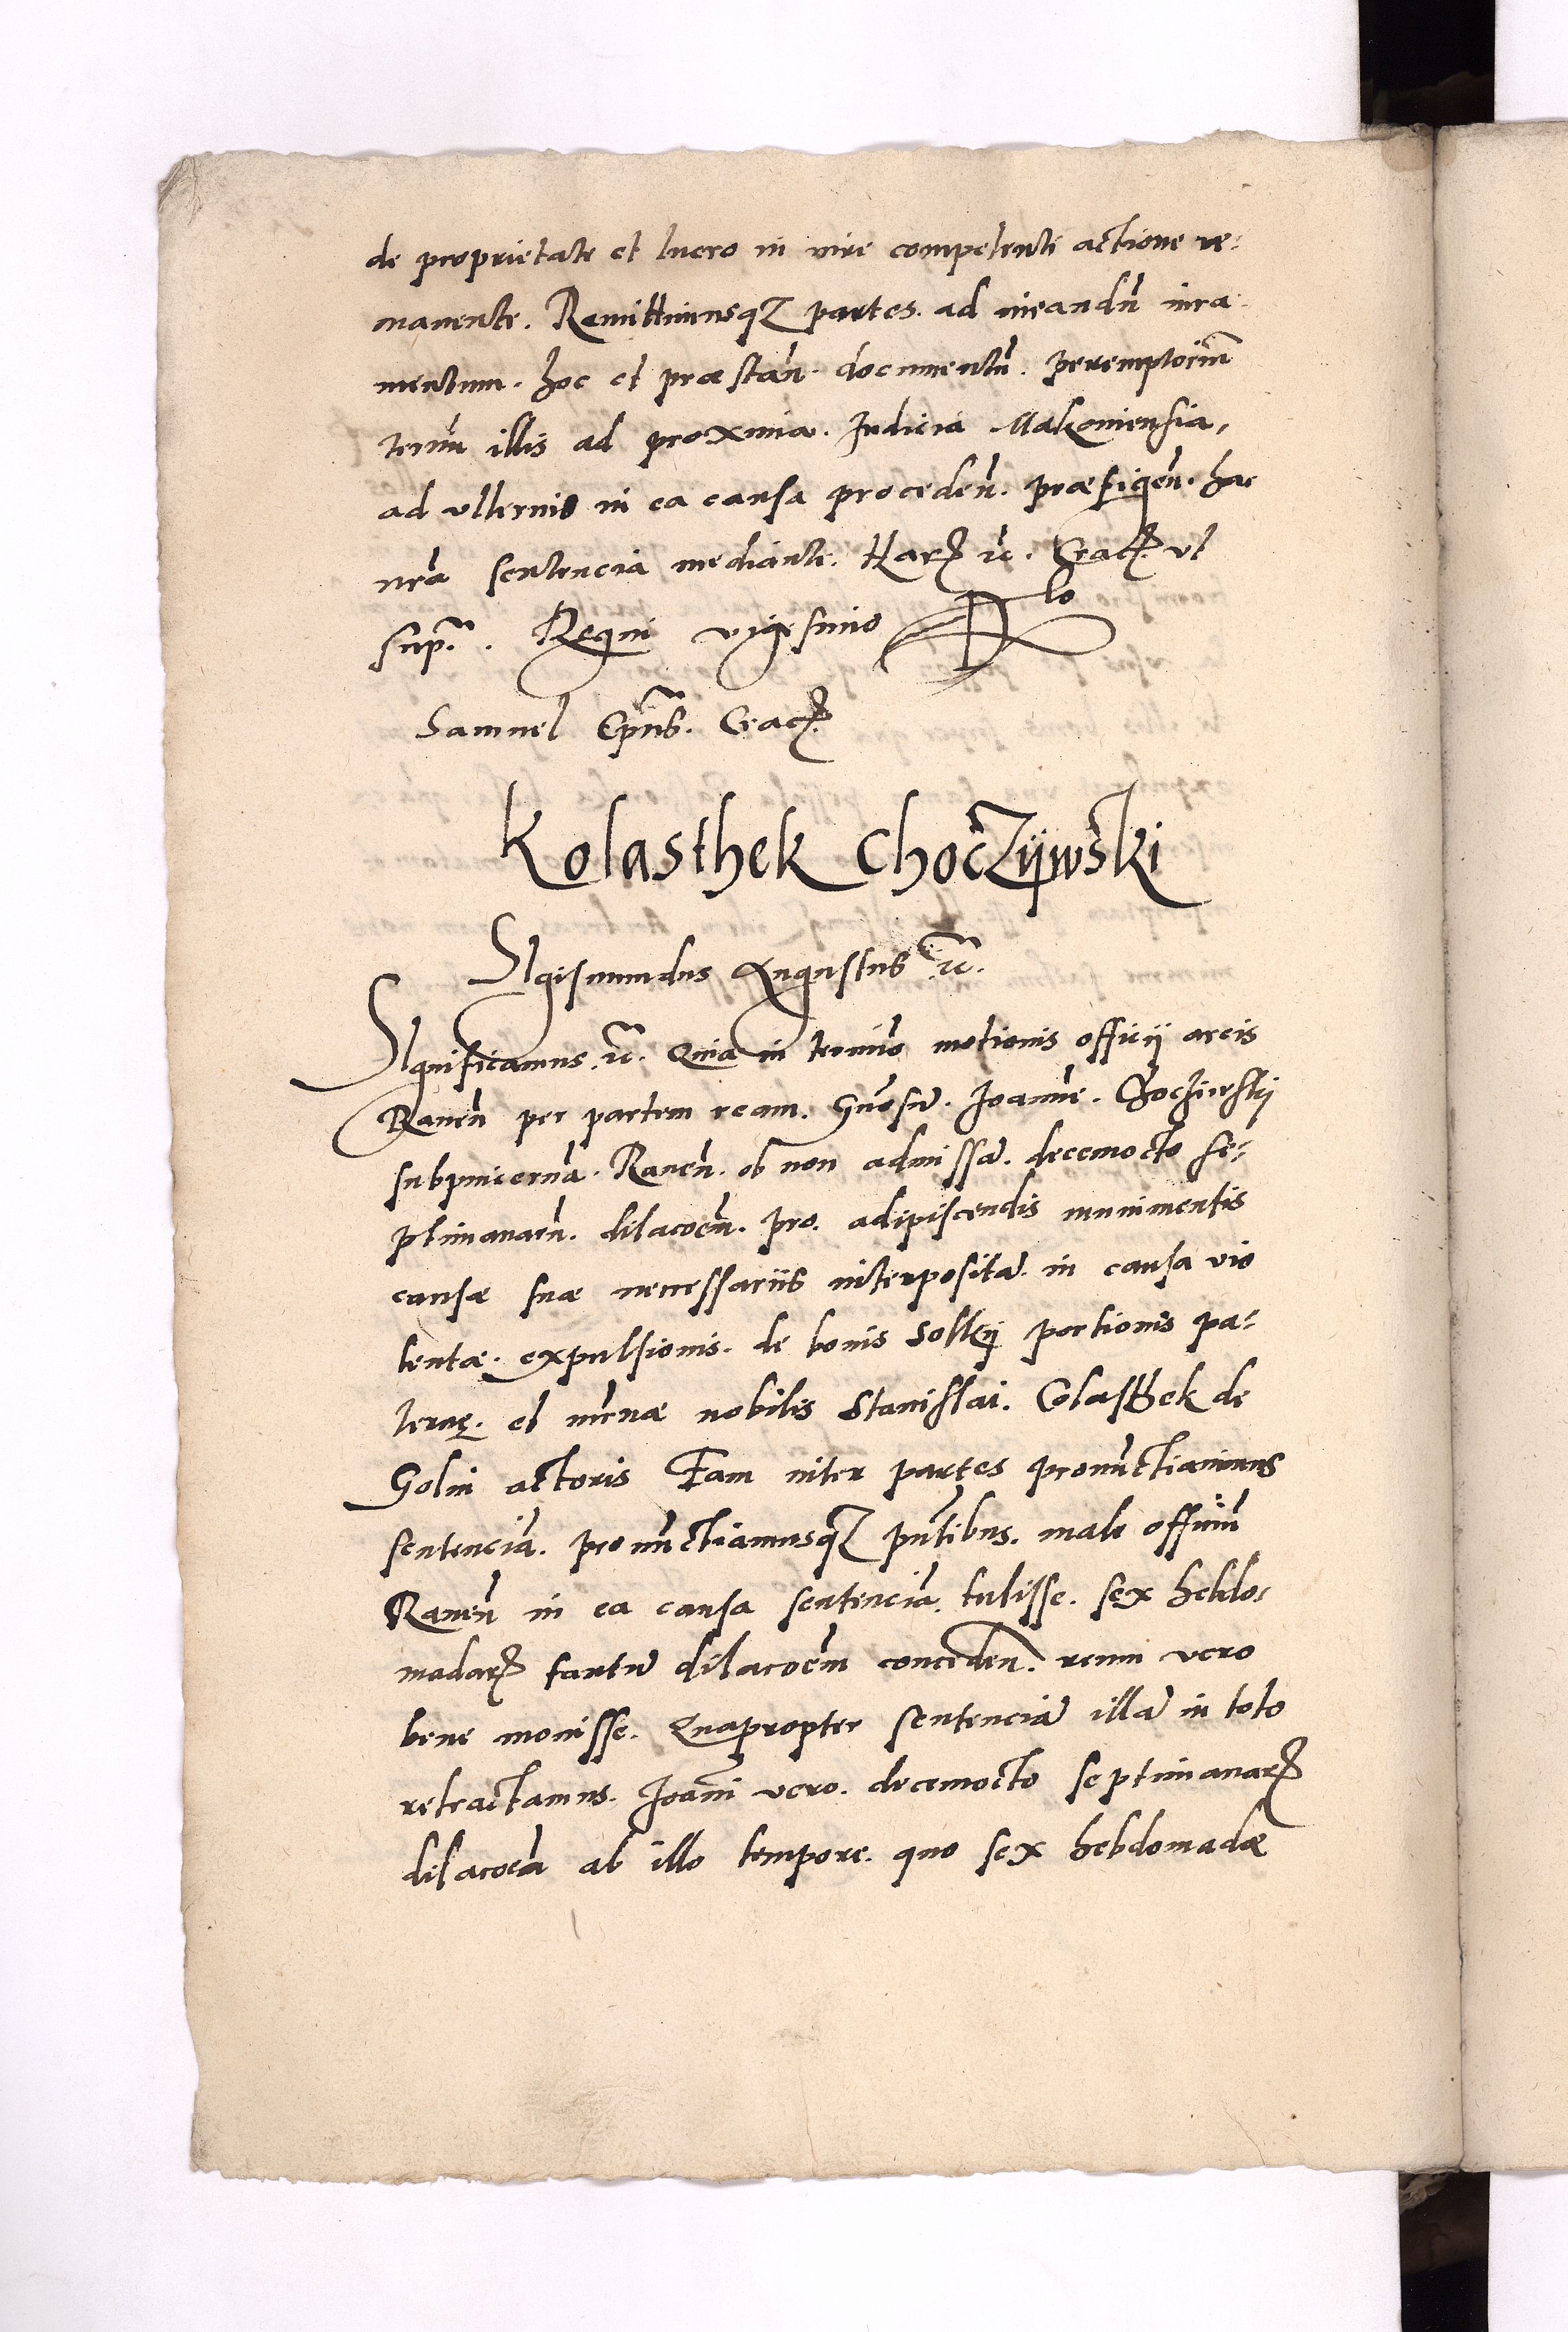 de proprietate et lucro in iure competenti actione re-
manente. Remittimusq3 partes. ad iurandū iura-
mentum. hoc et præstañ. documentū. peremptoriū
termū illis ad proxima. Iudicia Makouiensia,
ad vlterius in ea causa procedeñ. præfigeñ. hac
nrā sentencia mediante. Harꝝ ꝛc. Cracꝝ vt
sup.ᵃ. Regni vigesimo
Samuel Ep̄us. Cracꝝ
Kolasthek choczijwski
SIgismundus Augustus ꝛc.
SIgnificamus ꝛc. Quia in termīo motionis officij arcis
Raueñ per partem ream. Gn̄osū. Joannē. Chocziwskij
subpincernā. Raueñ. ob non admissā. decemocto se-
ptimanarū. dilacoēm. pro. adipiscendis munimentis
causæ suæ necessariis interpositā. in causa vio
lentæ. expulsionis. de bonis Solkij portionis pa-
ternę. et mr̄næ nobilis Stanislai. Colasthek de
Golin actoris Tam inter partes pronūctiauimus
sentenciā. pronūctiamusq3 pn̄tibus. male officiū
Raueñ in ea causa sentenciā. tulisse. sex hebdo-
madarꝝ tantū dilacoēm concedeñ. reum vero
bene mouisse. Quapropter sentenciā illā in toto
retractamus. Joāni vero. decemocto septimanarꝝ
dilacoēm ab illo tempore. quo sex hebdomadæ